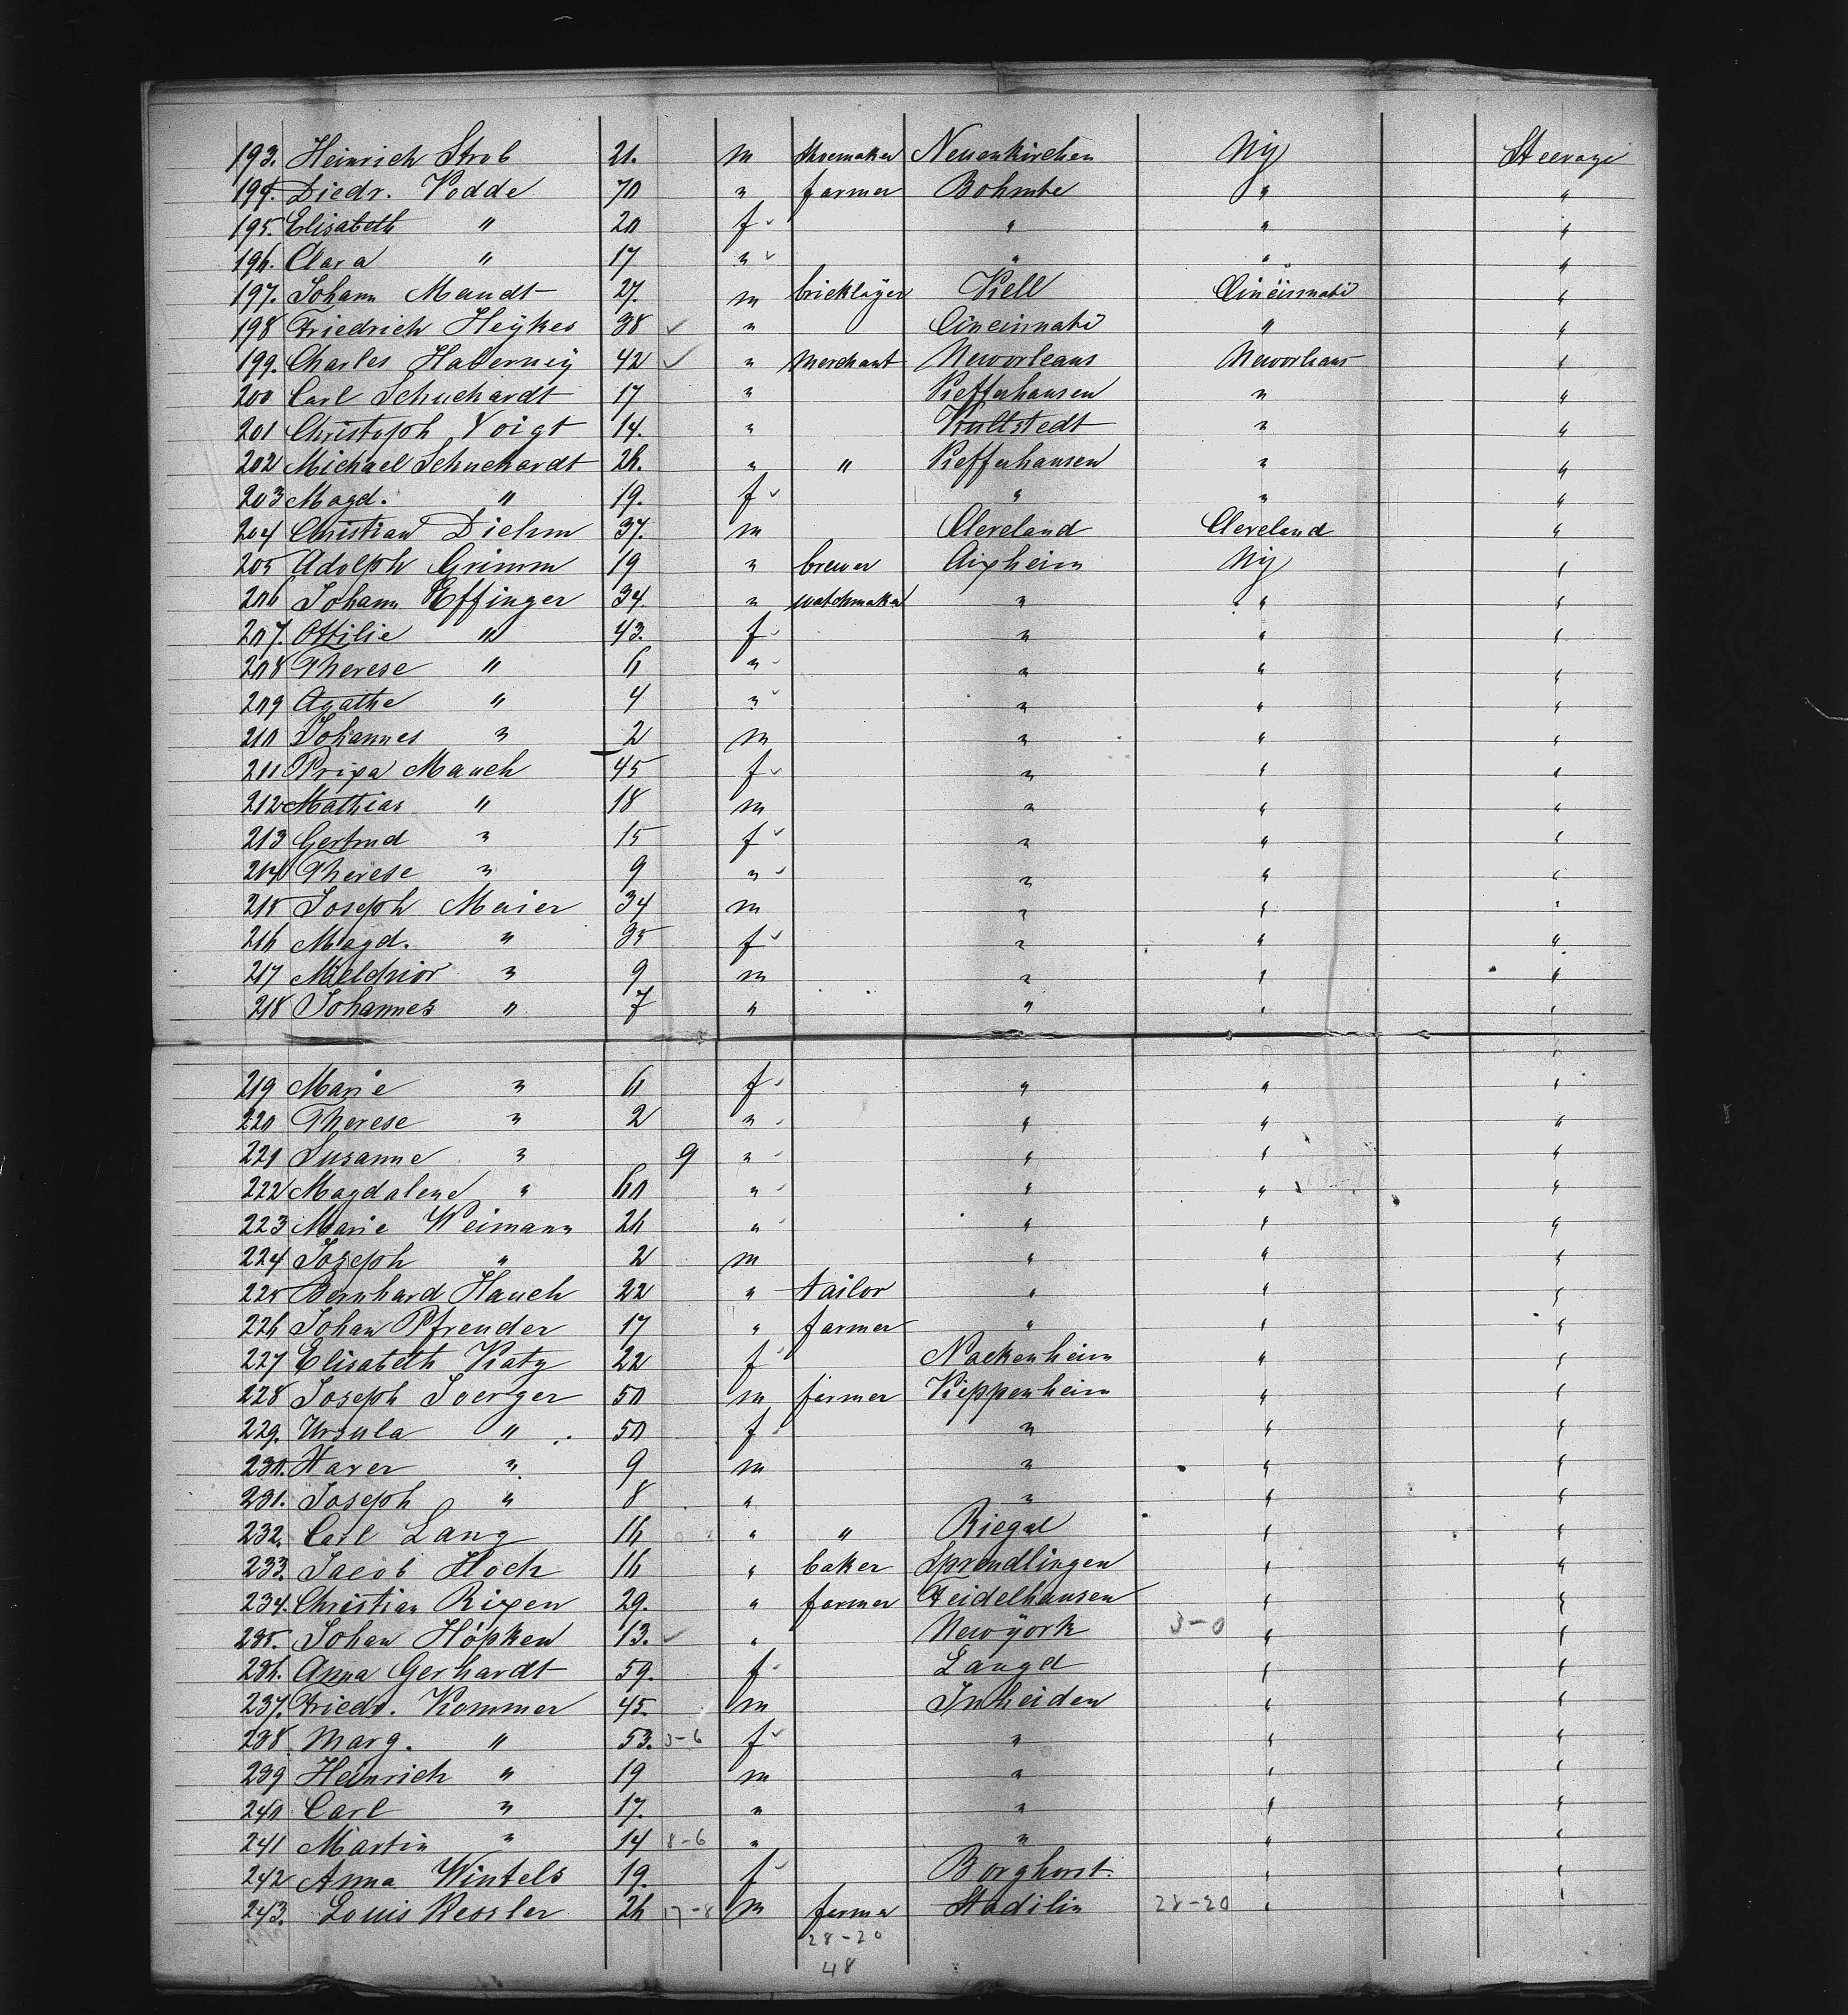 193. Heinrich Strob 21. m shoemaker Neuenkirchen Ny Steerage
194. Diedr. Vodde 70 " farmer Bohmte " "
195. Elisabeth " 20 f " " "
196. Clara " 17 " " " "
197. Johann Mandt 27. m bricklayer Kell Cincinnati "
198 Friedrich Heÿkes 38 " Cincinnati " "
199. Charles Haberneÿ 42 " Merchant Neworleans Neworleans "
200 Carl Schuchardt 17 " Kefferhausen " "
201 Christoph Voigt 14. " Kullstedt " "
202 Michael Schuchardt 26. " " Kefferhausen " "
203 Magd. " 19. f " " "
204 Christian Diehm 37. m Cleveland Cleveland "
205 Adolph Grimm 19 " brewer Aixheim Ny "
206 Johann Effinger 34. " watchmaker " " "
207. Ottilie " 43. f " " "
208 Therese " 6 " " " "
209 Agathe " 4 " " " "
210 Johannes " 2 m " " "
211 Prixa Mauch 45 f " " "
212 Mathias " 18 m " " "
213 Gertrud " 15 f " " "
214 Therese " 9 " " " "
215 Joseph Maier 34 m " " "
216 Magd. " 35 f " " "
217 Melchior " 9 m " " "
218 Johannes " 7 " " " "
219 Marie " 6 f " " "
220 Therese " 2 " " " "
221 Susanne " 9 " " " "
222 Magdalene " 60 " " " "
223 Marie Weimann 26 " " " "
224 Joseph " 2 m " " "
225 Bernhard Hauch 22 " tailor " " "
226 Johan Pfrender 17 " farmer " " "
227 Elisabeth Katz 22 f Nackenheim " "
228 Joseph Joerger 50 m farmer Kippenheim " "
229. Ursula " 50 f " " "
230. Xaver " 9 m " " "
231. Joseph " 8 " " " "
232. Carl Lang 16 " " Riegel " "
233. Jacob Hoch 16 " baker Sprendlingen " "
234. Christian Rixen 29. " farmer Feidelhausen " "
235. Johan Höpken 13. " Newÿork 3-0 " "
236. Anna Gerhardt 59. f Langd " "
237. Friedr. Kommer 45. m Inheiden " "
238 Marg. " 53. 3-6 f " " "
239 Heinrich " 19 m " " "
240 Carl " 17. " " " "
241 Martin " 14 8-6 " " " "
242 Anna Wintels 19. f Borghorst. " "
243. Louis Kessler 26 17-8 m farmer Stadilin 28-20 " "
28-20
48